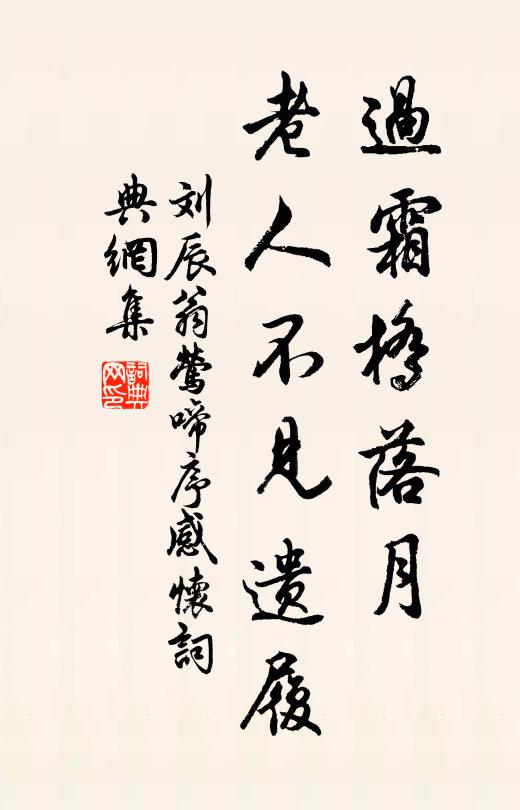 過霜橋落月
老人不見遺履
刘辰翁鶯啼序感懷詞
典網集
詞典
网印